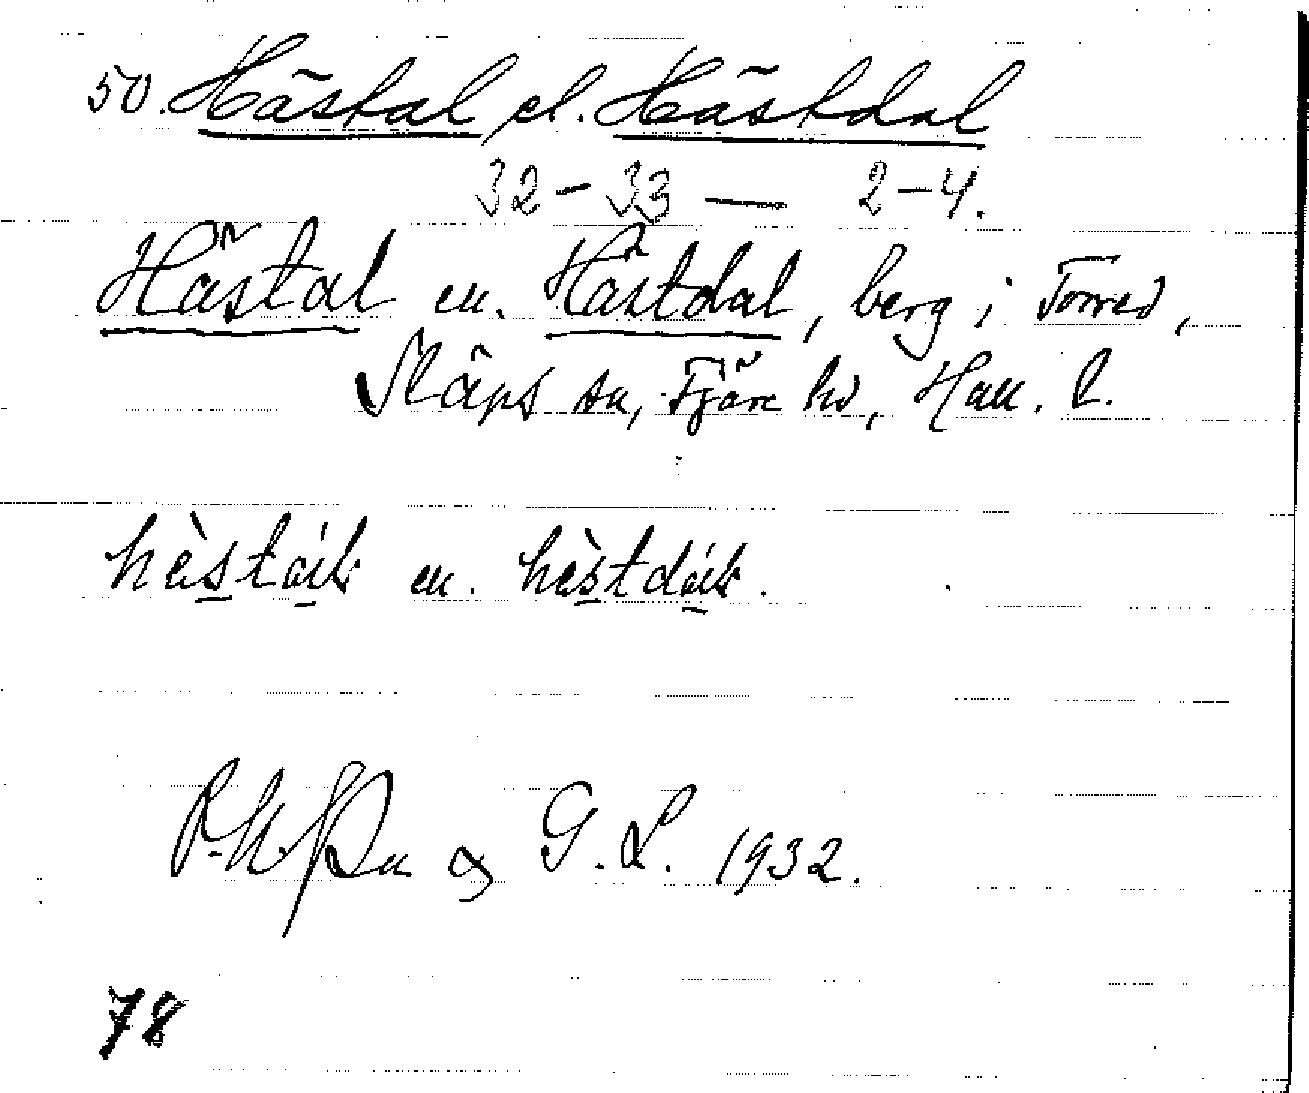 50. Hästal el. Hästdal
32-33 — 2-4.
Hästal el. Hästdal, berg i Torred,
Släps sn, Fjäre hd, Hall. l.
hèstál el. hèstdál.
& G. L. 1932.
78